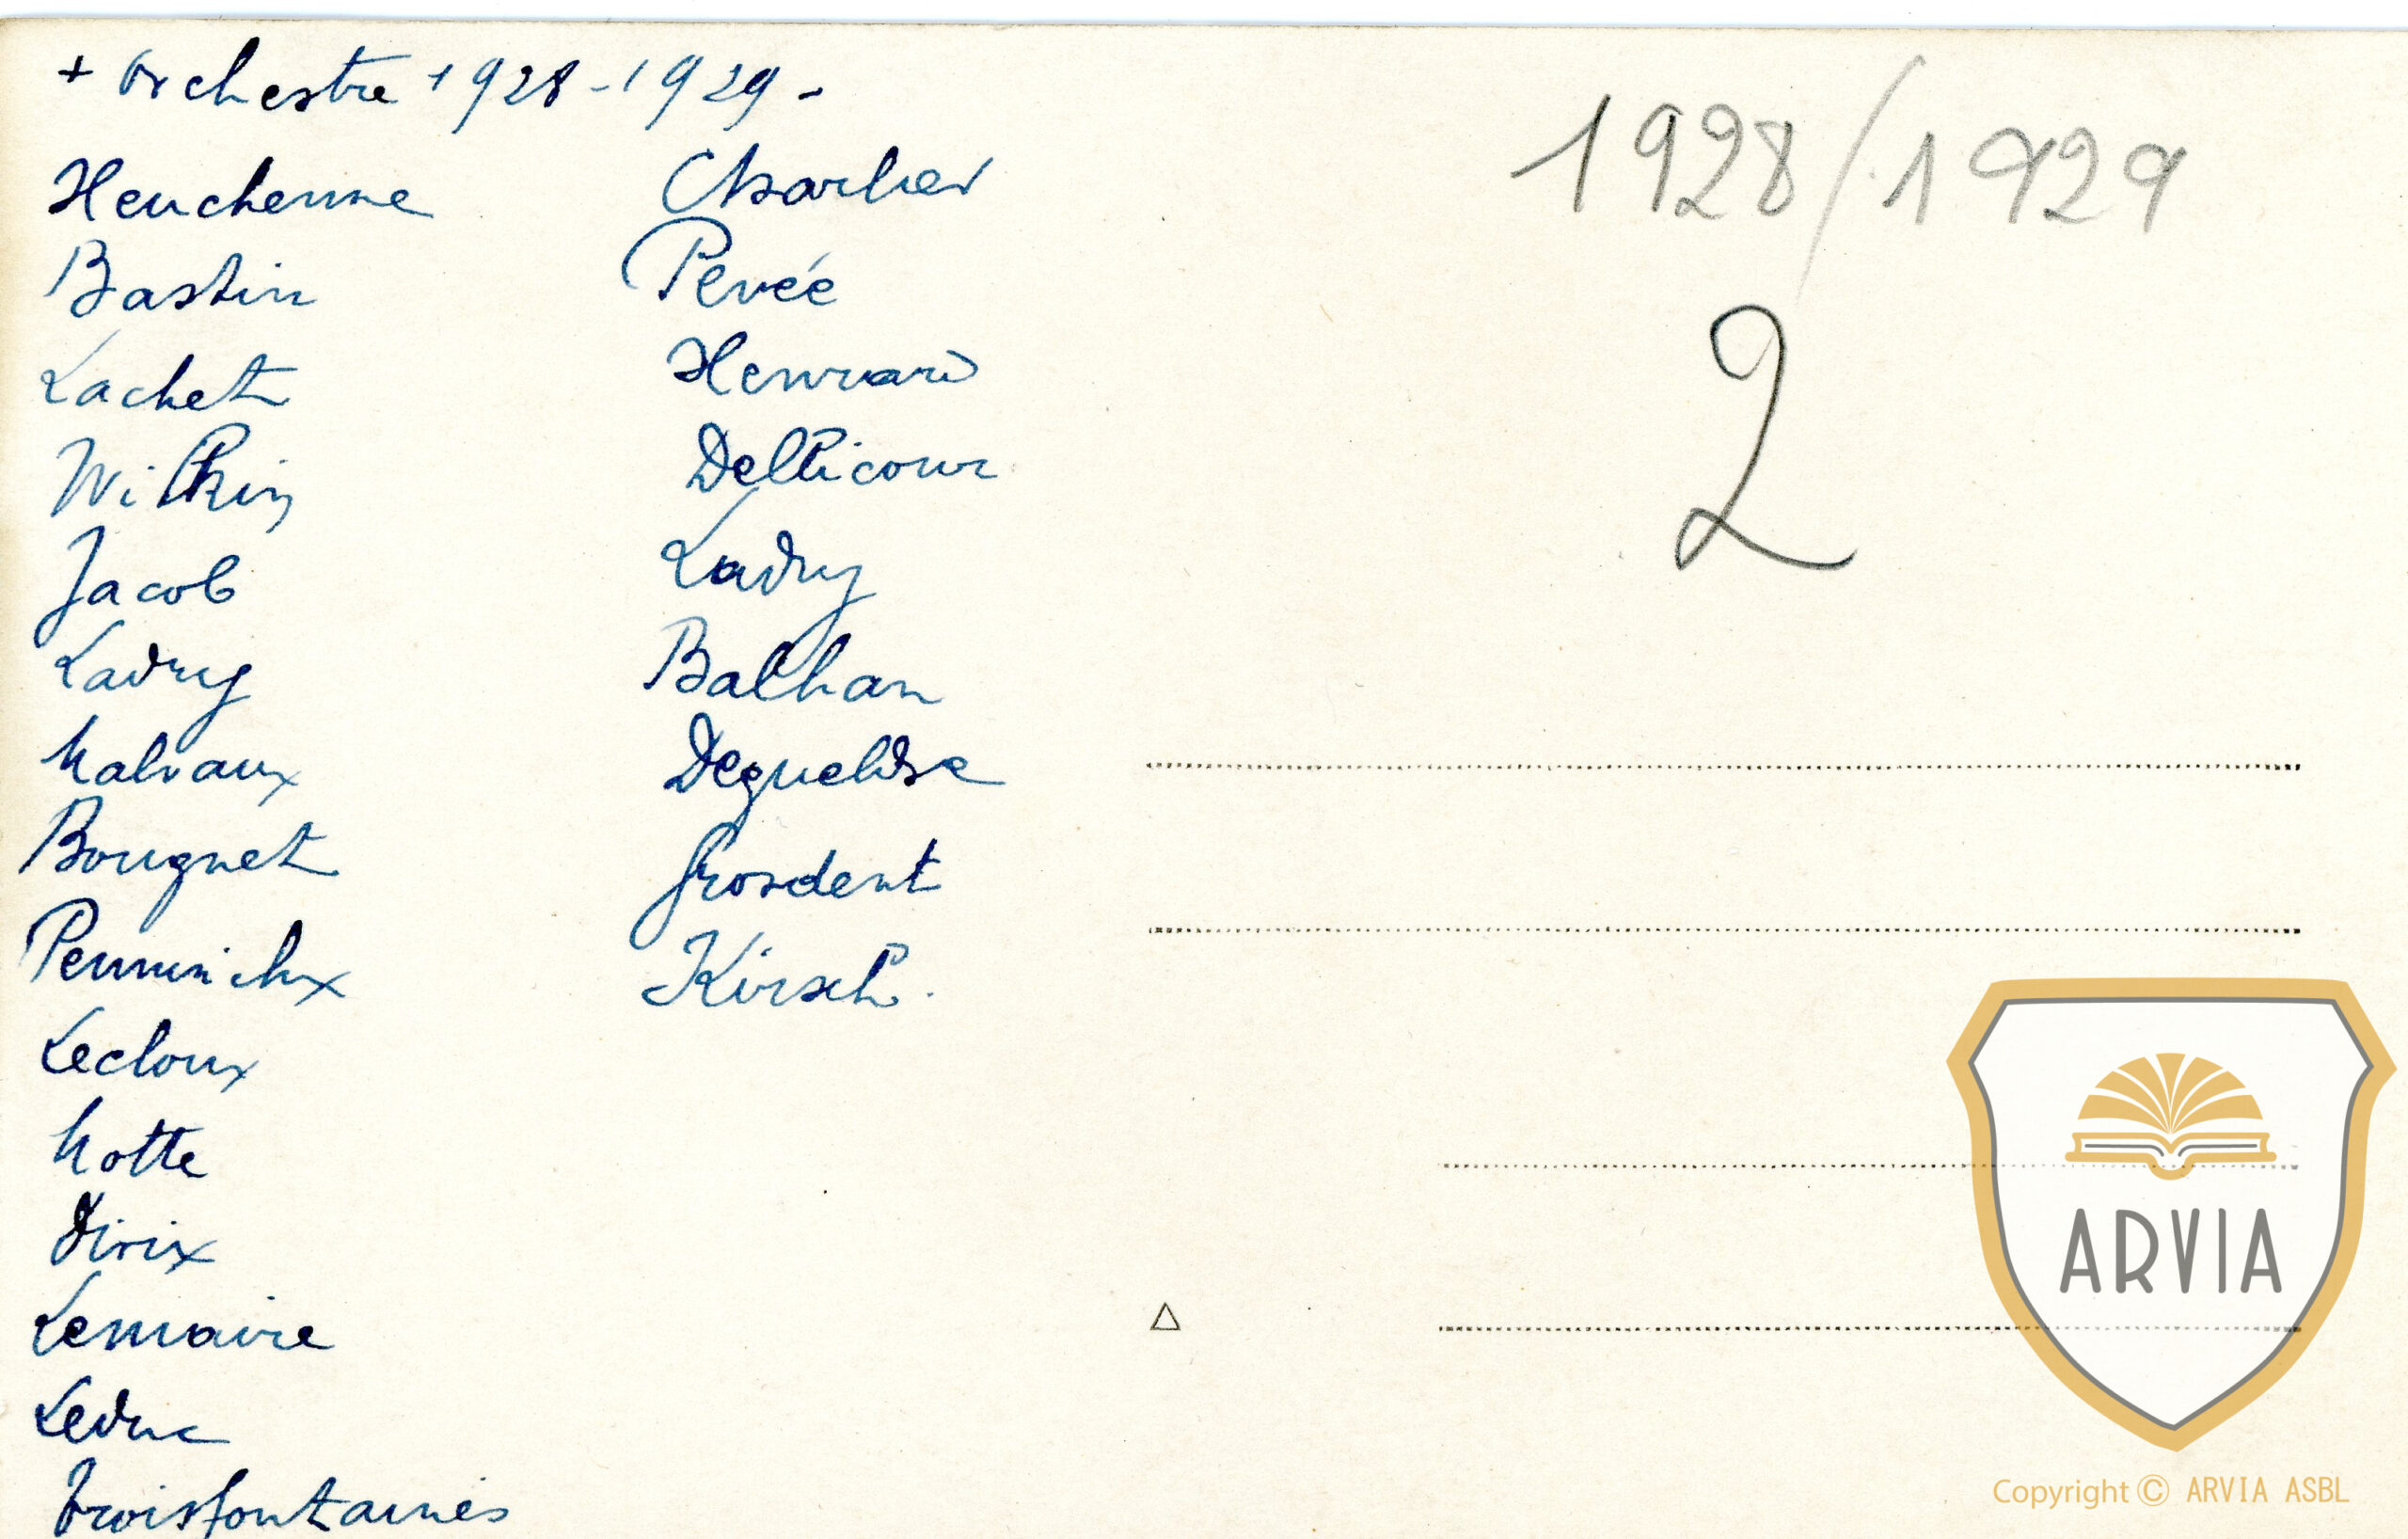 + Orchestre 1928-1929-
Heuchenne
Bastin
Lachet
Wilkin
Jacob
Ladry
Malvaux
Bougnet
Penninckx
Lecloux
Motte
Dirix
Lemaire
Leduc
Troisfontaines
Charlier
Pevée
Henrard
Dellicour
Ladry
Balhan
Degueldre
Grosdent
Kirsch.
1928/1929
2
ARVIA
Copyright © ARVIA ASBL